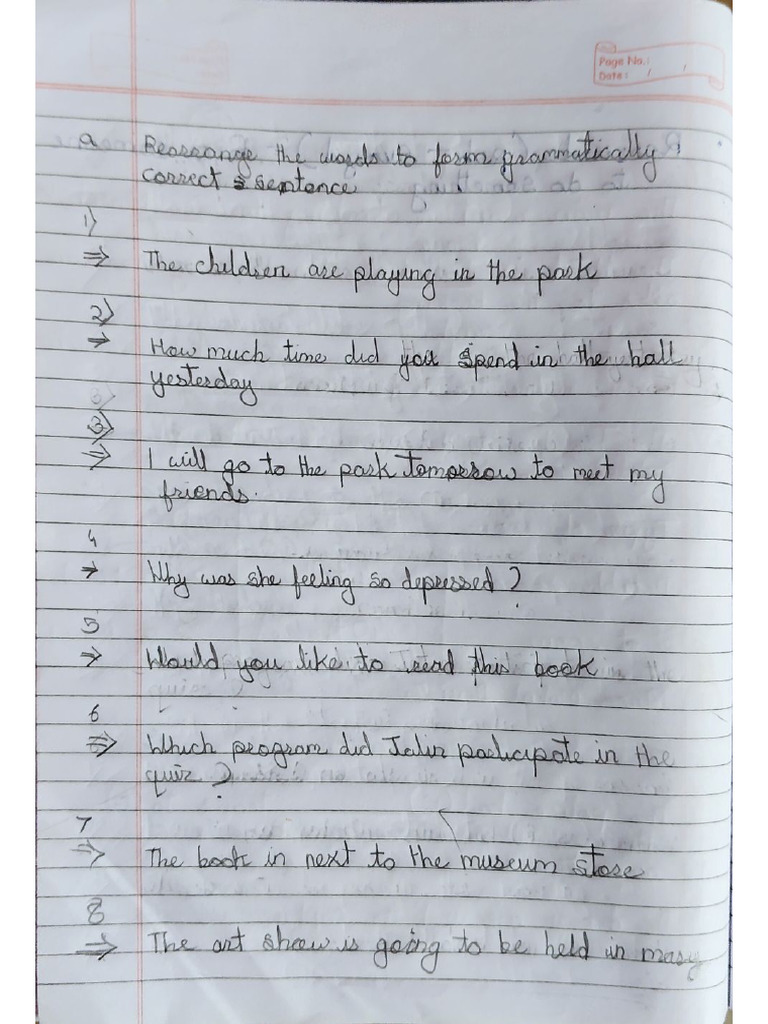 Page No.:
Date: / /
a Rearrange the words to form grammatically
correct sentence
1)
⇒ The children are playing in the park
2)
→ How much time did you spend in the hall
yesterday
3)
⇒ I will go to the park tomorrow to meet my
friends.
4
→ Why was she feeling so depressed?
5
⇒ Would you like to read this book
6
⇒ Which program did participate in the
quiz?
7
⇒ The book in next to the museum store
8
⇒ The art show is going to be held in